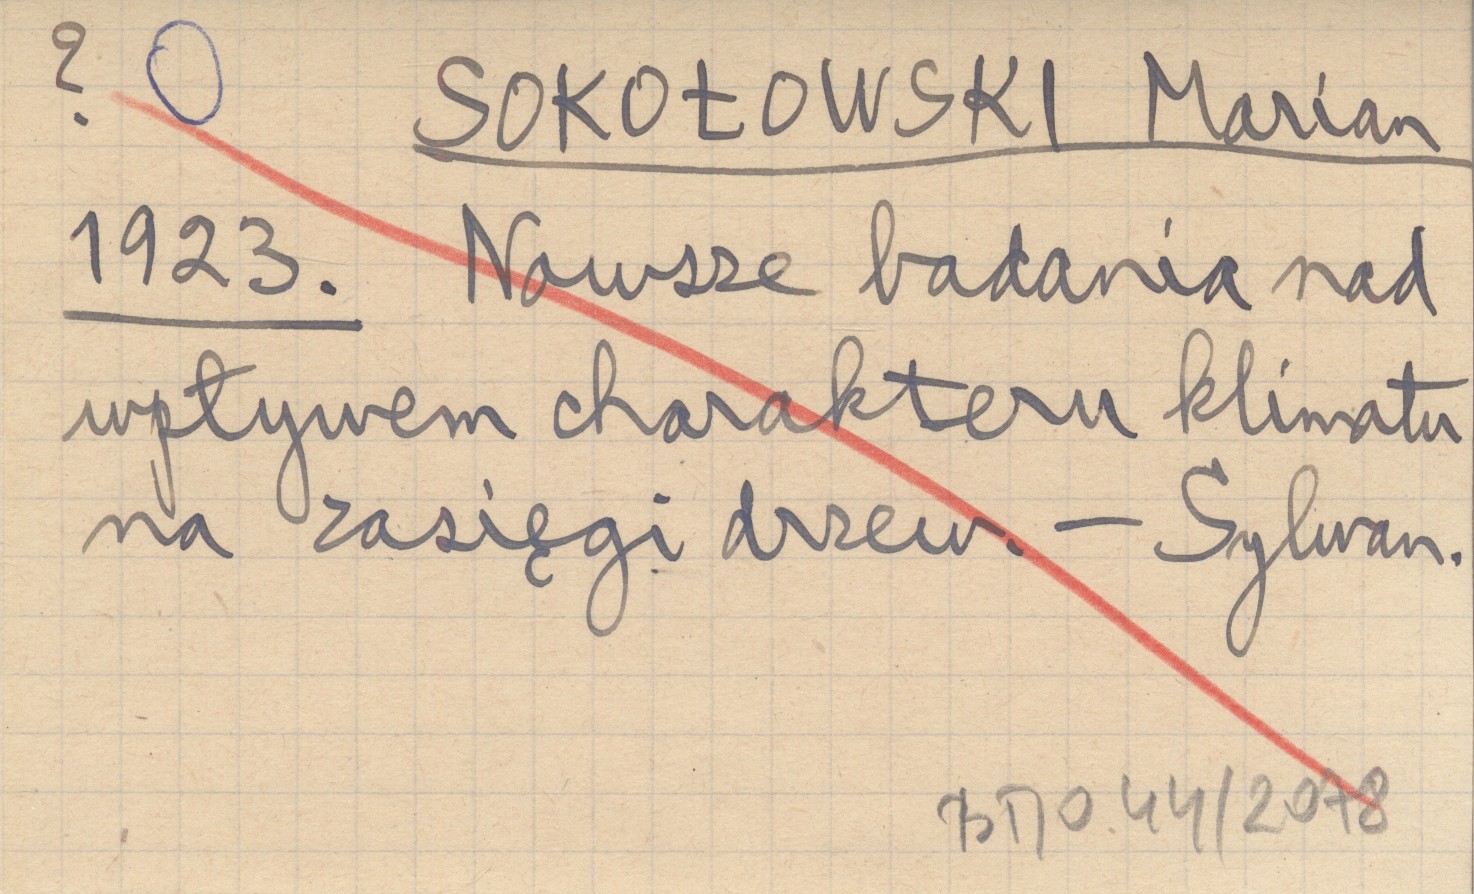 ? O SOKOŁOWSKI Marian
1923. Nowsze badania nad
wpływem charakteru klimatu
na zasięgi drzew. — Sylwan.
BПO.44/2078